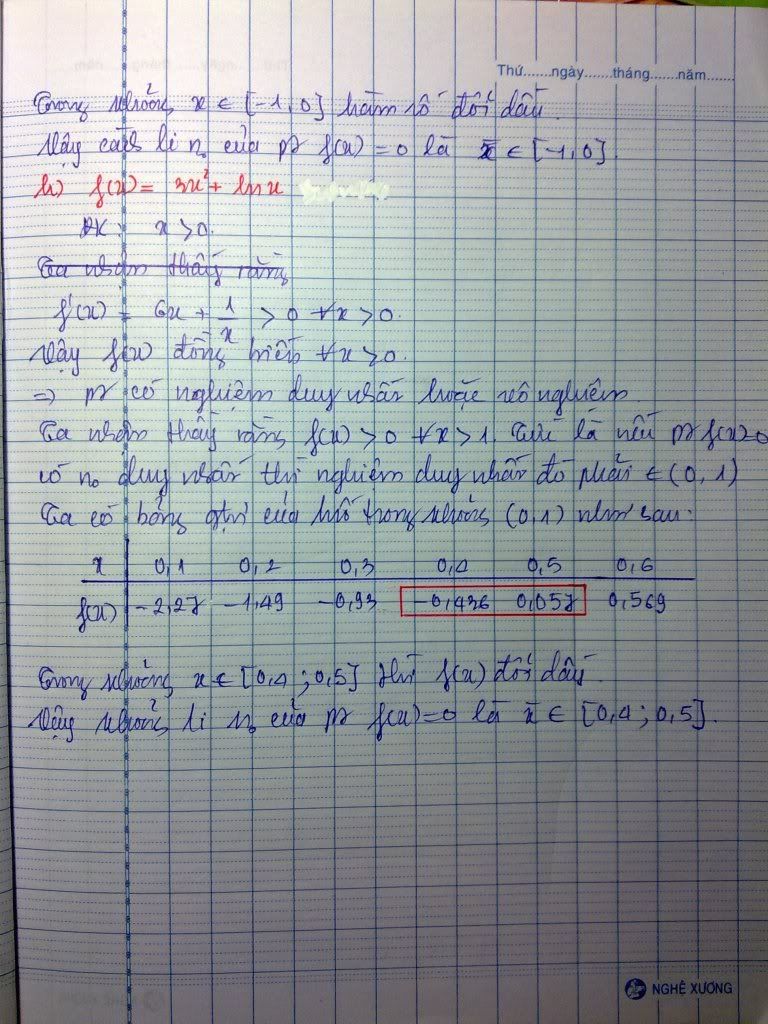 Thứ.......ngày.......tháng.......năm.......
Trong khoảng x ∈ [-1, 0] hàm số đổi dấu.
Vậy cách li n₀ của pt f(x) = 0 là x̄ ∈ [-1, 0].
h) f(x) = 3x² + ln x
ĐK: x > 0.
Ta nhận thấy rằng
f'(x) = 6x + 1/x > 0 ∀x > 0.
Vậy f(x) đồng biến ∀x > 0.
=> pt có nghiệm duy nhất hoặc vô nghiệm.
Ta nhận thấy rằng f(x) > 0 ∀x > 1. Tức là nếu pt f(x)=0
có n₀ duy nhất thì nghiệm duy nhất đó phải ∈ (0, 1)
Ta có bảng gtrị của hsố trong khoảng (0,1) như sau:
x 0,1 0,2 0,3 0,4 0,5 0,6
f(x) -2,27 -1,49 -0,93 -0,436 0,057 0,569
Trong khoảng x ∈ [0,4 ; 0,5] thì f(x) đổi dấu.
Vậy khoảng li n₀ của pt f(x) = 0 là x̄ ∈ [0,4 ; 0,5].
NGHỆ XƯƠNG